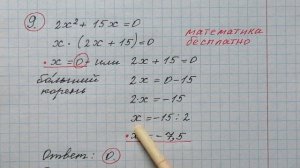 9) 2x² + 15x = 0
математика
бесплатно
x · (2x + 15) = 0
x = 0 или 2x + 15 = 0
больший корень
2x = 0 - 15
2x = -15
x = -15 : 2
x = -7,5
Ответ: 0